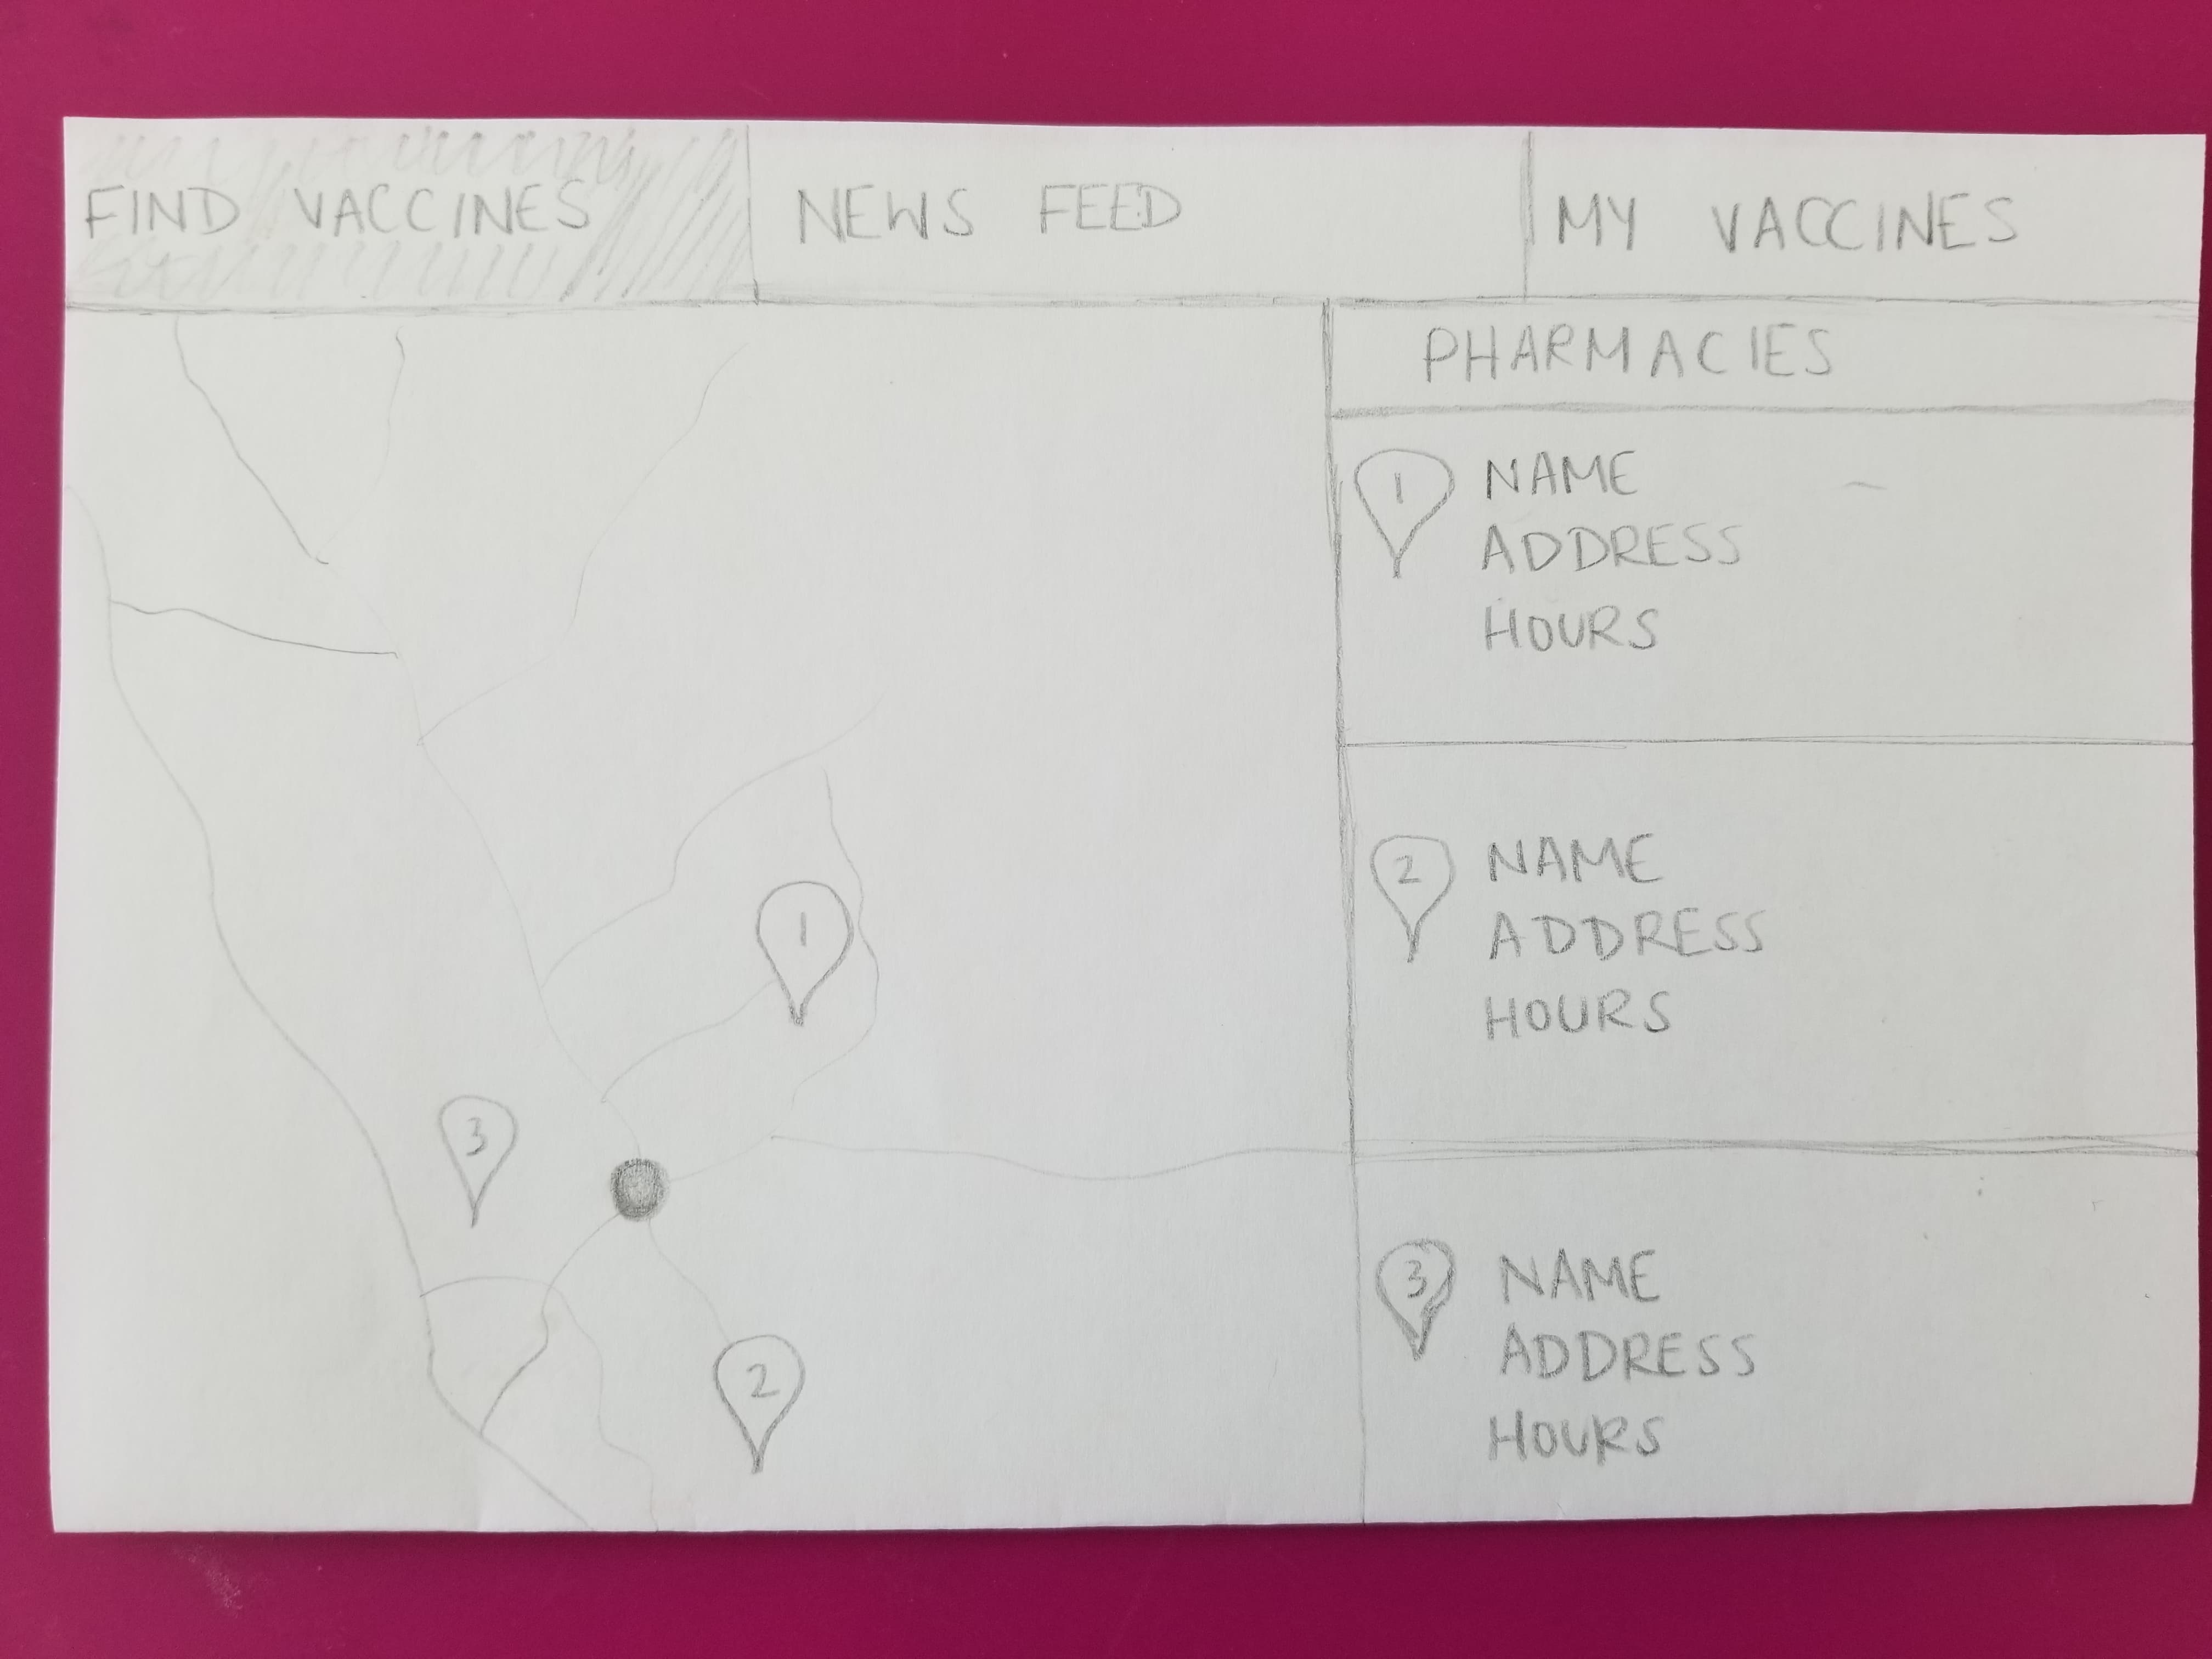 FIND VACCINES
NEWS FEED
MY VACCINES
PHARMACIES
1 NAME
ADDRESS
HOURS
2 NAME
ADDRESS
HOURS
3 NAME
ADDRESS
HOURS
1
3
2